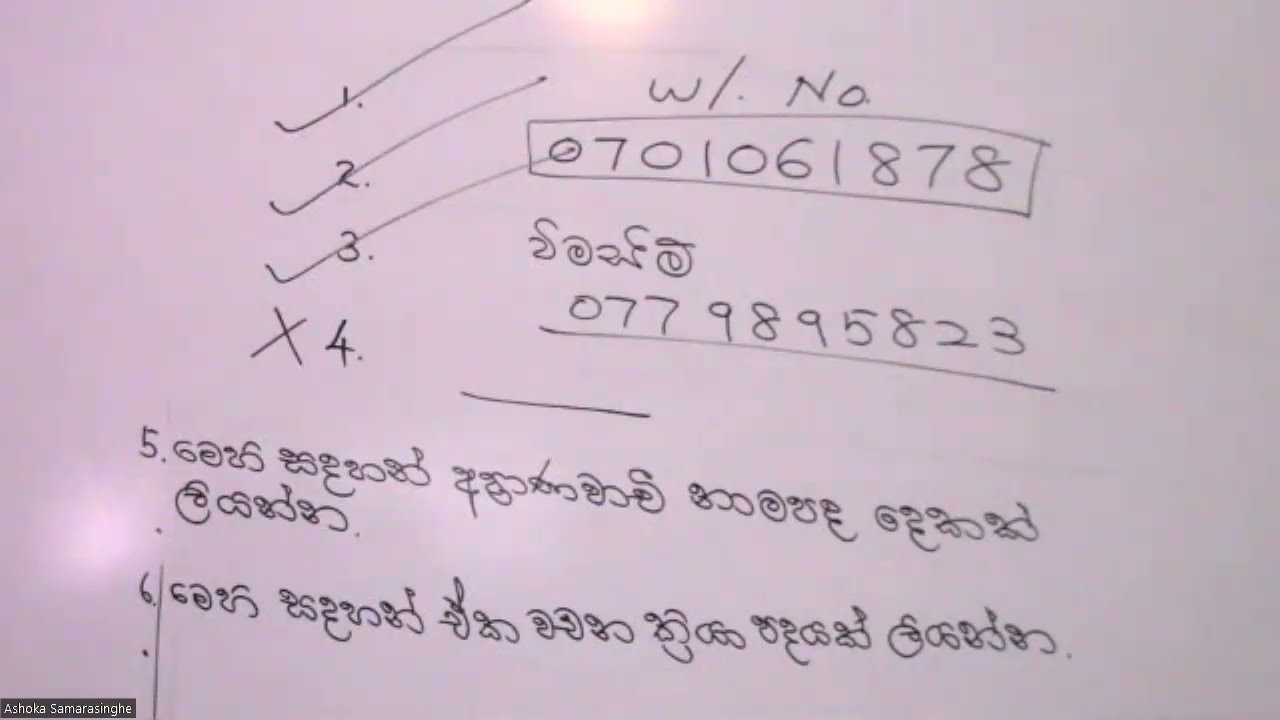 1.
2.
3.
4.
W/. No.
0701061878
විමසීම්
077 9895823
5. මෙහි සඳහන් අප්‍රාණවාචී නාමපද දෙකක්
ලියන්න.
6. මෙහි සඳහන් ඒක වචන ක්‍රියා පදයක් ලියන්න.
Ashoka Samarasinghe